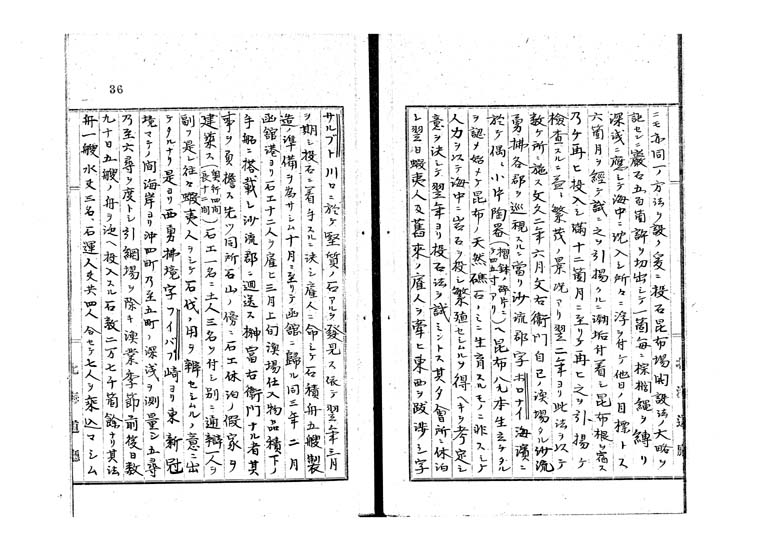 ニモ亦同一ノ方法ヲ設ク爰ニ投石昆布場開設法ノ大略ヲ
記センニ巖石五百箇許ヲ切出シテ一箇每ニ棕梠繩ヲ縛リ
深浅ニ應シテ海中ニ沈入シ所々ニ浮ヲ付ケ他日ノ目標トス
六箇月ヲ經テ試ニ之ヲ引揚クルニ 昆布根ヲ宿ス
乃ケ再ヒ投入シ滿十二箇月ニ至リ再ヒ之ヲ引揚ケ
檢査スルニ益々繁茂ノ景况アリ翌二年ヨリ此法ヲ以テ
数ケ所ニ施ス文久二年六月文右衞門自己ノ漁場タル沙流
勇拂各郡ヲ巡視スルニ當リ沙流郡字ポロナイ海濱ニ
於テ偶々小片陶器(摺鉢ノ碎片ニシテ四五寸アリ)ヘ昆布八九本生立ケタル
ヲ認メ始メテ昆布ノ天然礁石ノミニ生育スルモノニ非スシテ
人力ヲ以テ海中ニ岩石ヲ投シ繁殖セシムルヲ得ヘキヲ考定シ
意ヲ決シテ翌年ヨリ投石法ヲ試ミントス其夕會所ニ休泊
シ翌日蝦夷人丈舊來ノ雇人ヲ率ヒ東西ヲ跋渉シ字
サルブト川口ニ於テ堅質ノ石アルヲ發見ス依テ翌年三月
ヲ期シ投石ニ着手スルニ決シ雇人ニ命シテ石積舟五艘製
造ノ準備ヲ爲サシム十月ニ至リテ函館ニ歸ル同三年二月
函館港ヨリ石工十二人ヲ雇ヒ三月上旬漁場仕入物品積下ノ
手船ニ搭載シ沙流郡ニ廻送ス榊富右衞門ナル者其
事ヲ負擔ス先ツ同所石山ノ傍ニ石工休泊ノ假家ヲ
建築ス(奥行四間長十二間)石工一名ニ土人三名ヲ付シ別ニ通辯一人ヲ
副フ是レ往々蝦夷人ヲシテ石伐ノ用ヲ辯セシムルノ意ニ出
ケタルナリ是ヨリ西勇拂境字フイバフ崎ヨリ東新冠
境マテノ間海岸ヨリ沖四町乃至五町ノ深浅ヲ測量シ五尋
乃至六尋ヲ度トシ引網場ヲ除キ漁業季節前後日数
九十日五艘ノ舟ヲ以テ投入スル石数二万七千箇餘ナリ其法
舟一艘水夫三名石運人夫共四人合セテ七人ヲ乘込マシム
36
北海道廳